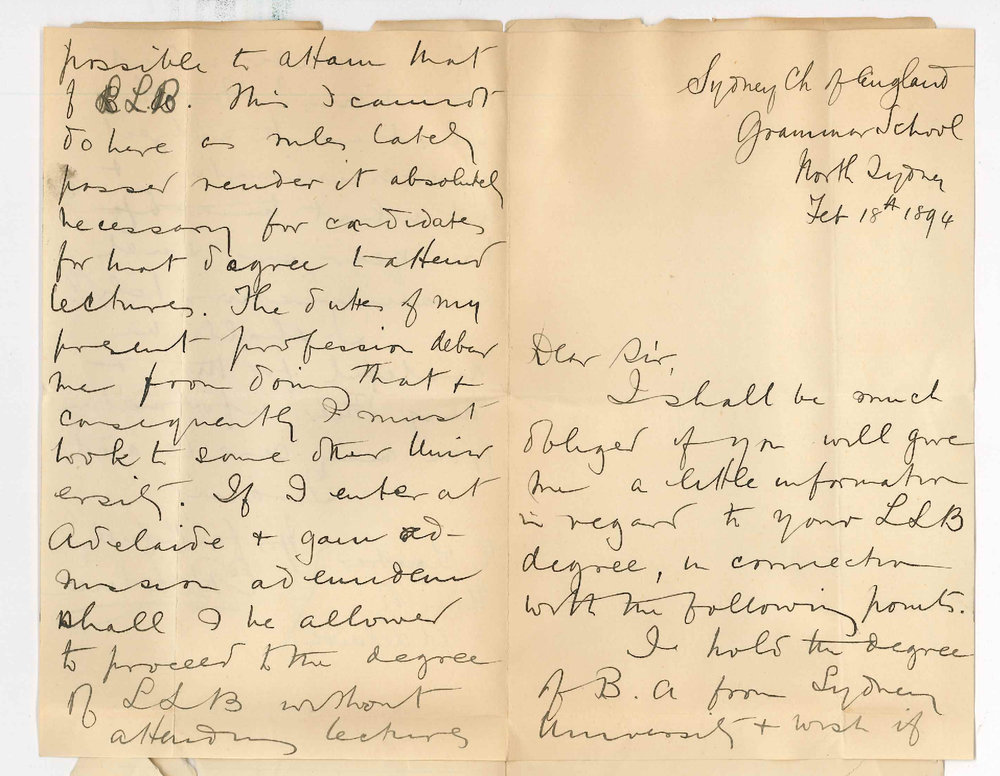 Sydney Ch of England
Grammar School
North Sydney
Feb 18th 1894
Dear Sir,
I shall be much
obliged if you will give
me a little information
in regard to your LLB
degree, in connection
with the following points.
I hold the degree
of B.A from Sydney
University & wish if
possible to attain that
of LLB. This I cannot
do here as rules lately
passed render it absolutely
necessary for candidates
for that degree to attend
lectures. The duties of my
present profession debar
me from doing that &
consequently I must
look to some other Univer
ersity. If I enter at
Adelaide & gain ad-
mission ad eundem
shall I be allowed
to proceed to the degree
of LLB without
attending lectures